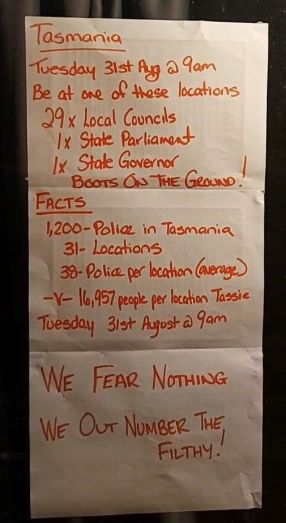 Tasmania
Tuesday 31st Aug @ 9am
Be at one of these locations
29 x Local Councils
1x State Parliament
1x State Governor
BOOTS ON THE GROUND!
FACTS
1,200 - Police in Tasmania
31 - Locations
38 - Police per location (average)
-V- 16,957 people per location Tassie
Tuesday 31st August @ 9am
WE FEAR NOTHING
WE OUT NUMBER THE
FILTHY!